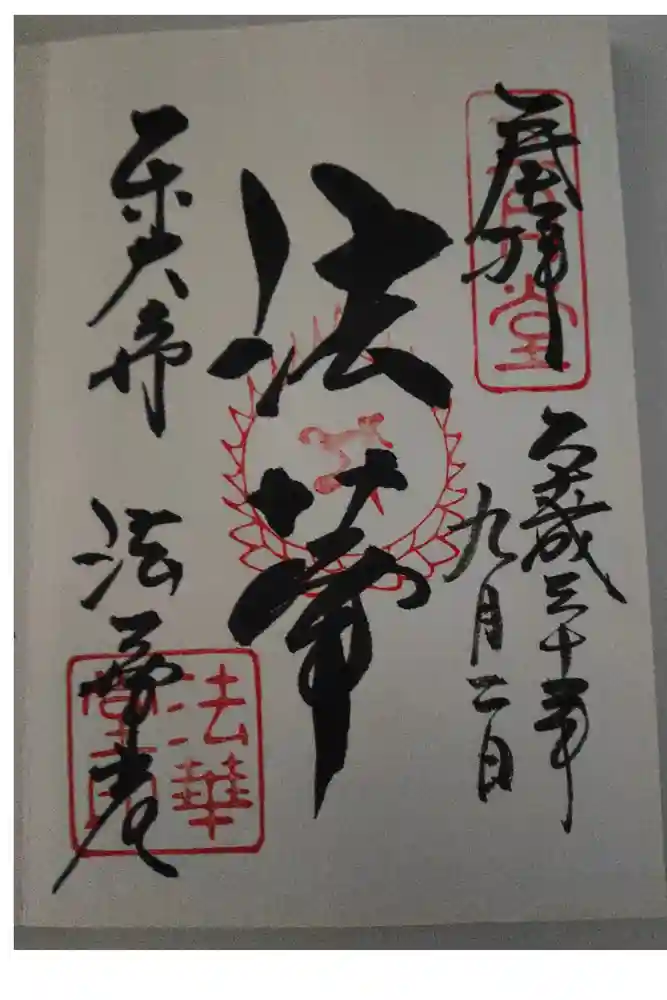 奉拝
平成三十年
九月二日
法華
東大寺 法華堂
法華
堂印